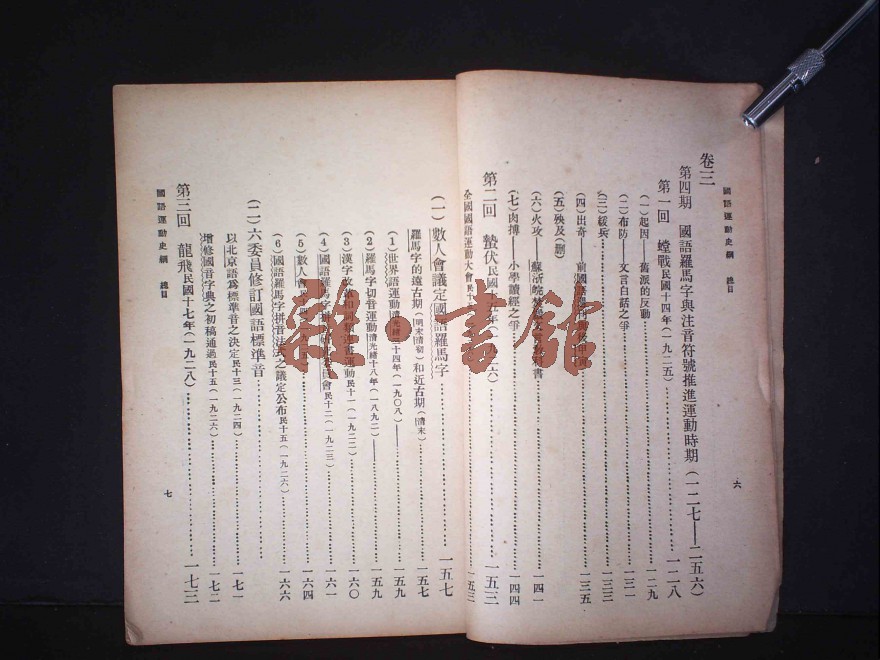 國語運動史綱　總目
六
卷三
第四期　國語羅馬字與注音符號推進運動時期（一二七——二五六）
第一回　螳戰民國十四年（一九二五）…………一二八
（一）起因——舊派的反動…………一二九
（二）布防——文言白話之爭…………一三一
（三）緩兵…………一三三
（四）出奇——前國語週刊…………一三五
（五）殃及（删）
（六）火攻——蘇浙皖…………一四一
（七）肉搏——小學讀經之爭…………一四四
第二回　蟄伏民國十五年（一九二六）…………一五三
全國國語運動大會民十…………一五三
（一）數人會議定國語羅馬字…………一五七
羅馬字的遠古期（明末清初）和近古期（清末）…………一五七
（1）世界語運動清光緒三十四年（一九〇八）——…………一五九
（2）羅馬字切音運動清光緒十八年（一八九二）——…………一五九
（3）漢字改革和詞類連書運動民十一（一九二二）…………一六〇
（4）國語羅馬字拼音…會民十二（一九二三）…………一六一
（5）數人會民十四（一九二五）…………一六四
（6）國語羅馬字拼音法式之議定公布民十五（一九二六）…………一六六
（二）六委員修訂國語標準音…………
以北京語爲標準音之決定民十三（一九二四）…………一七一
增修國音字典之初稿通過民十五（一九二六）…………一七二
第三回　龍飛民國十七年（一九二八）…………一七三
國語運動史綱　總目
七
雜·書館